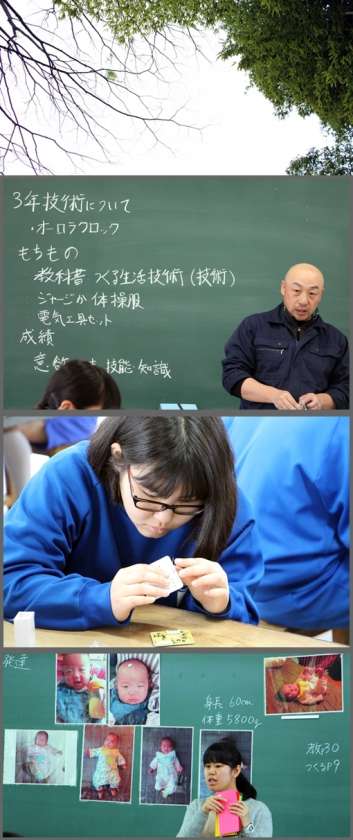 3年技術について
・オーロラクロック
もちもの
教科書 つくる生活技術(技術)
ジャージか体操服
電気工具セット
成績
技能・知識
発達
身長 60cm
体重 5800g
教P30
つくるP9